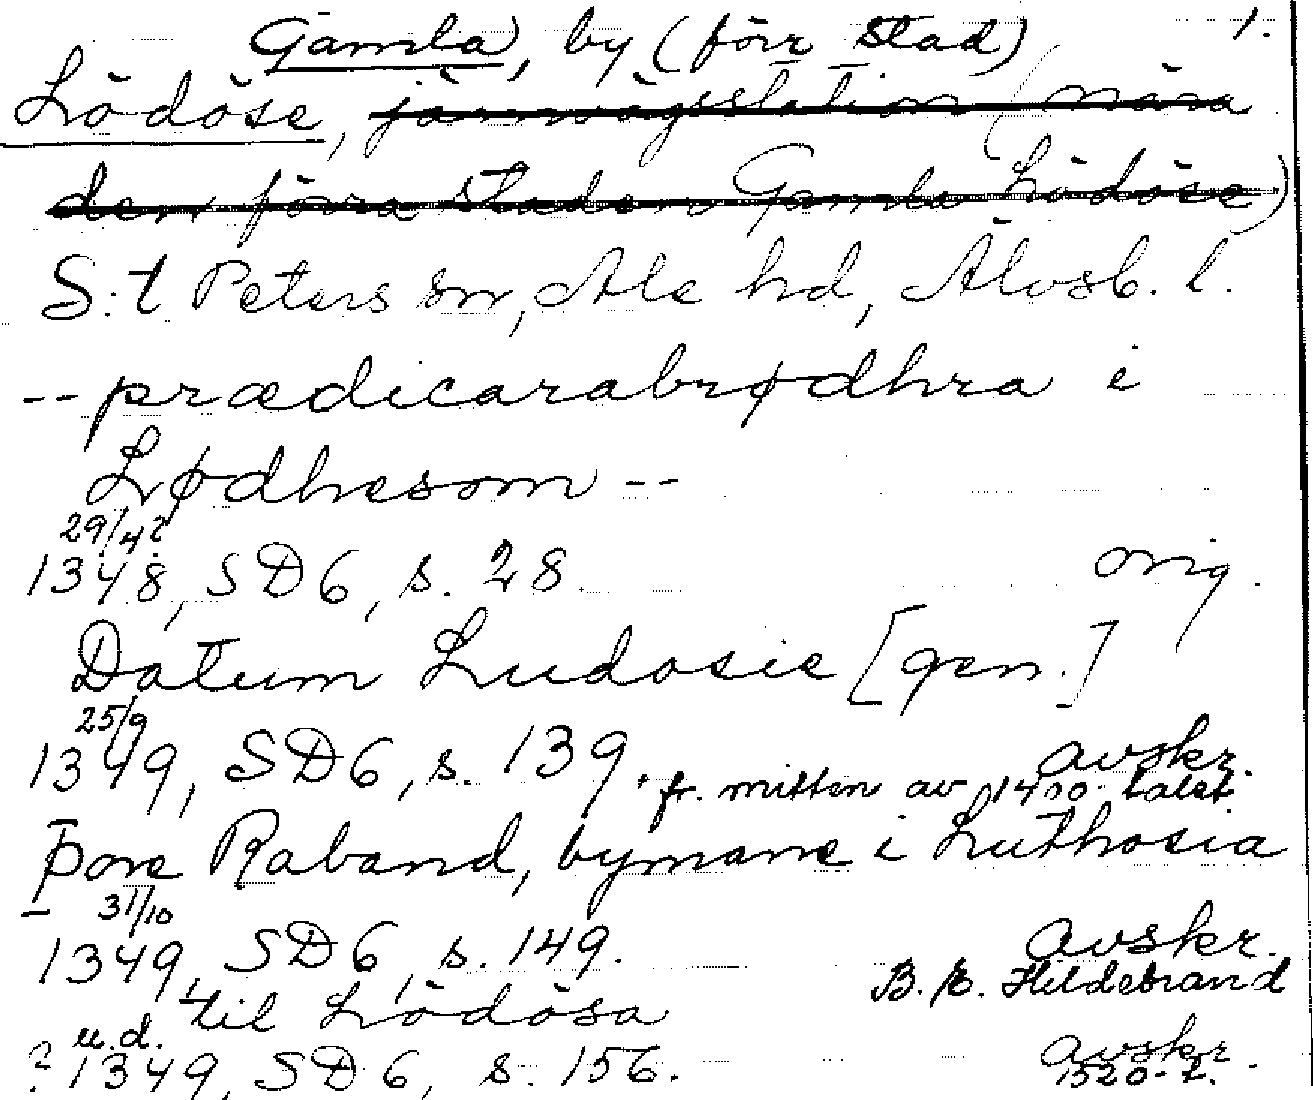 Gamla, by (förr stad) 1.
Lödöse, järnvägsstation (nära
den förra staden Gamla Lödöse)
S:t Peters sn, Ale hd, Älvsb. l.
-- prædicarabrødhra i
Lødhesom --
29/4?
1348, SD 6, s. 28. orig.
Datum Ludosie [gen.]
25/9
1349, SD 6, s. 139. avskr.
fr. mitten av 1400-talet
Þore Raband, bymane i Luthosia
31/10
1349, SD 6, s. 149. avskr.
B. E. Hildebrand
til Lödösa
u.d.
? 1349, SD 6, s. 156. avskr.
1520-t.